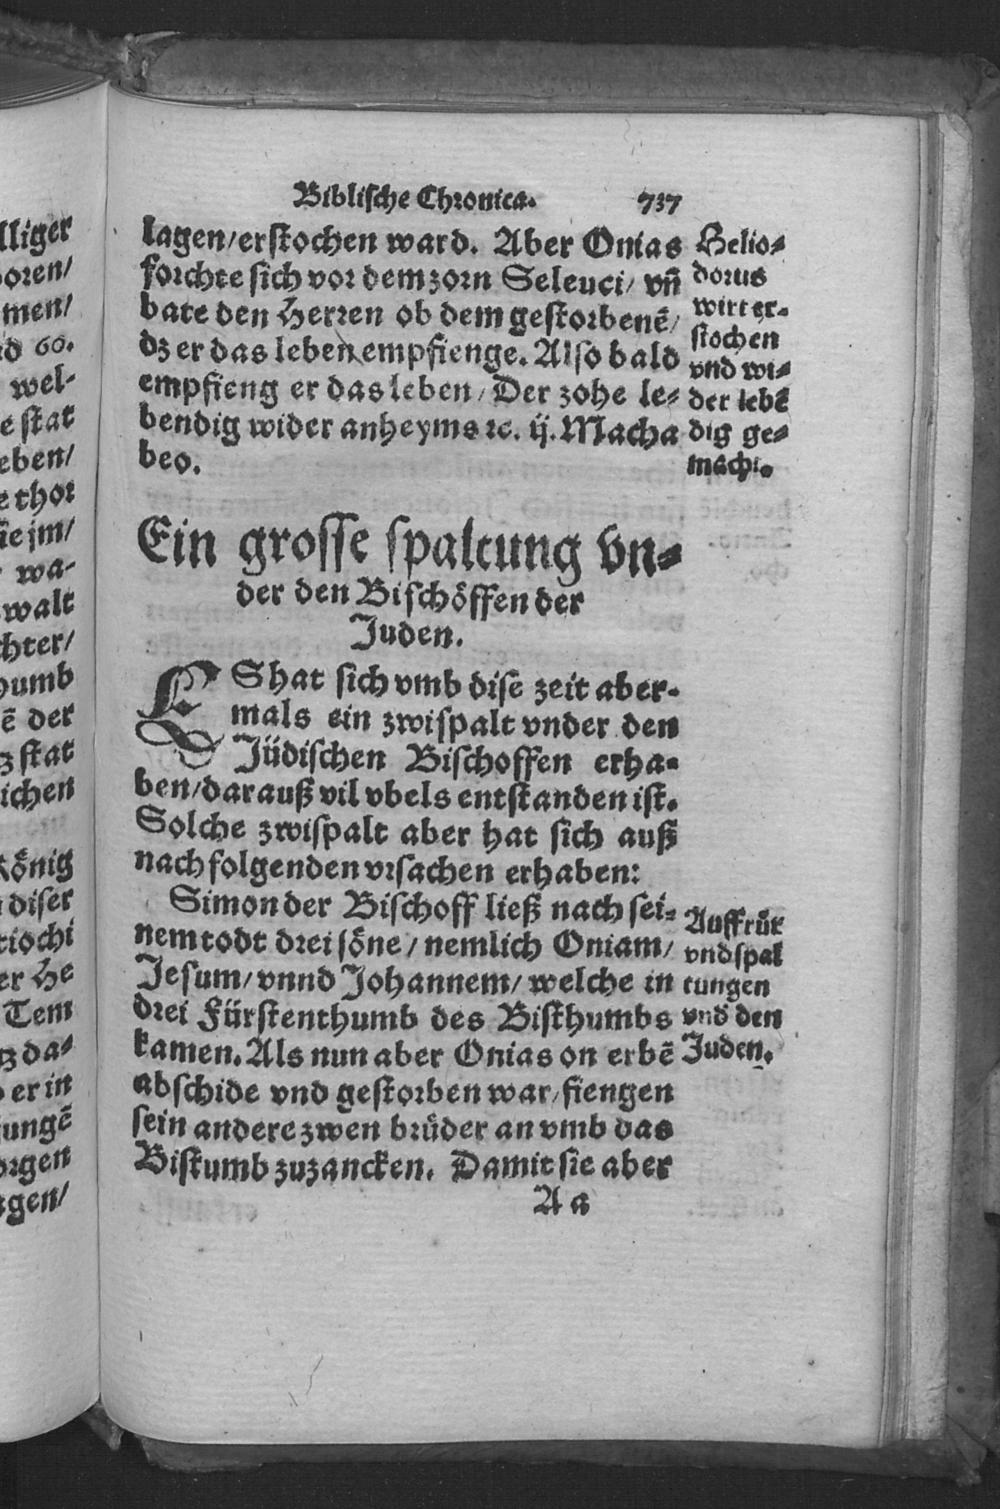 lliger
oren/
men/
d 60.
wel-
e stat
eben/
e thor
ñe jm/
wa-
walt
chter/
humb
ẽ der
z stat
ichen
König
diser
tiochi
er He
Tem
tz da-
er in
jungẽ
orgen
gen/
Biblische Chronica. 737
lagen/erstochen ward. Aber Onias
forchte sich vor dem zorn Seleuci/ vñ
bate den Herren ob dem gestorbenẽ/
dz er das leben empfienge. Also bald
empfieng er das leben/ Der zohe le-
bendig wider anheyms ꝛc. ij. Macha
beo.
Helio-
dorus
wirt er-
stochen
vnd wi-
der lebẽ
dig ge-
macht.
Ein grosse spaltung vn-
der den Bischöffen der
Juden.
ES hat sich vmb dise zeit aber-
mals ein zwispalt vnder den
Jüdischen Bischoffen erha-
ben/darauß vil vbels entstanden ist.
Solche zwispalt aber hat sich auß
nachfolgenden vrsachen erhaben:
Simon der Bischoff ließ nach sei-
nem todt drei söne/ nemlich Oniam/
Jesum/ vnnd Johannem/ welche in
drei Fürstenthumb des Bisthumbs
kamen. Als nun aber Onias on erbẽ
abschide vnd gestorben war/ fiengen
sein andere zwen brüder an vmb das
Bistumb zuzancken. Damit sie aber
Auffrůr
vnd spal
tungen
vnd den
Juden.
A a